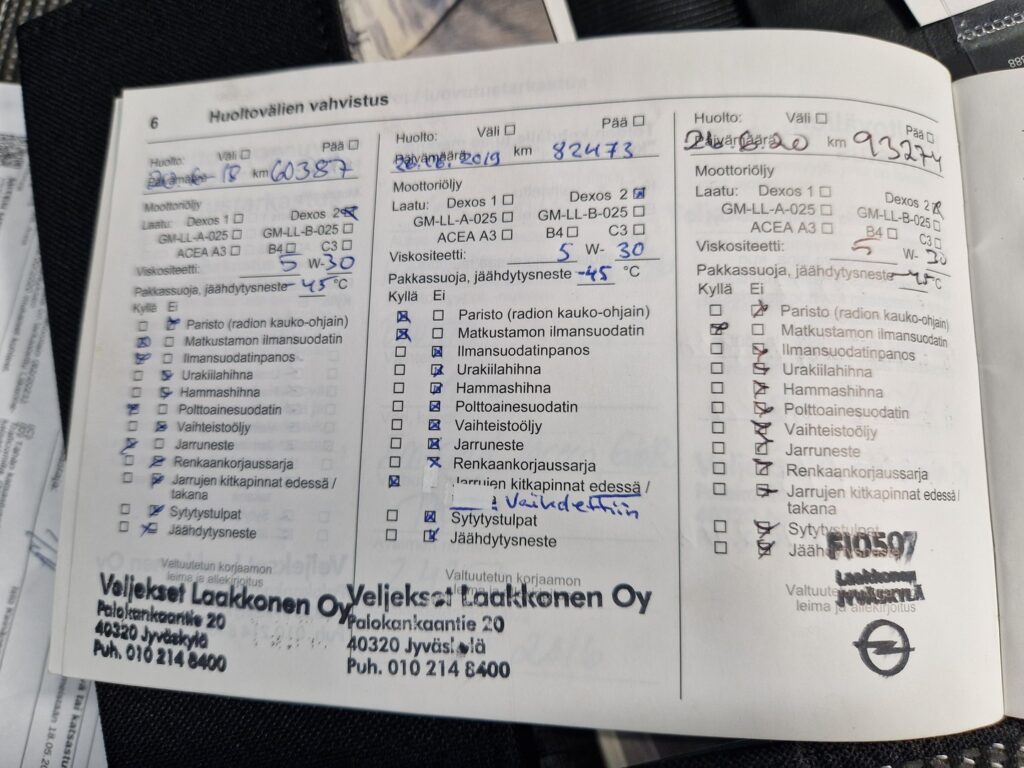 6 Huoltovälien vahvistus
Huolto: Väli Pää
-18 km 60387
Moottoriöljy
Laatu: Dexos 1 Dexos 2
GM-LL-A-025 GM-LL-B-025
ACEA A3 B4 C3
Viskositeetti: 5 W-30
Pakkassuoja, jäähdytysneste -45 °C
Kyllä Ei
Paristo (radion kauko-ohjain)
Matkustamon ilmansuodatin
Ilmansuodatinpanos
Urakiilahihna
Hammashihna
Polttoainesuodatin
Vaihteistoöljy
Jarruneste
Renkaankorjaussarja
Jarrujen kitkapinnat edessä /
takana
Sytytystulpat
Jäähdytysneste
Valtuutetun korjaamon
leima ja allekirjoitus
Veljekset Laakkonen Oy
Palokankaantie 20
40320 Jyväskylä
Puh. 010 214 8400
Huolto: Väli Pää
Päivämäärä 26.06.2019 km 82473
Moottoriöljy
Laatu: Dexos 1 Dexos 2
GM-LL-A-025 GM-LL-B-025
ACEA A3 B4 C3
Viskositeetti: 5 W-30
Pakkassuoja, jäähdytysneste -45 °C
Kyllä Ei
Paristo (radion kauko-ohjain)
Matkustamon ilmansuodatin
Ilmansuodatinpanos
Urakiilahihna
Hammashihna
Polttoainesuodatin
Vaihteistoöljy
Jarruneste
Renkaankorjaussarja
Jarrujen kitkapinnat edessä /
: Vaihdettiin
Sytytystulpat
Jäähdytysneste
Valtuutetun korjaamon
leima ja allekirjoitus
Veljekset Laakkonen Oy
Palokankaantie 20
40320 Jyväskylä
Puh. 010 214 8400
Huolto: Väli Pää
Päivämäärä 6 20 km 93274
Moottoriöljy
Laatu: Dexos 1 Dexos 2
GM-LL-A-025 GM-LL-B-025
ACEA A3 B4 C3
Viskositeetti: 5 W-30
Pakkassuoja, jäähdytysneste -45 °C
Kyllä Ei
Paristo (radion kauko-ohjain)
Matkustamon ilmansuodatin
Ilmansuodatinpanos
Urakiilahihna
Hammashihna
Polttoainesuodatin
Vaihteistoöljy
Jarruneste
Renkaankorjaussarja
Jarrujen kitkapinnat edessä /
takana
Sytytystulpat
FIO597
Laakkonen
JYVÄSKYLÄ
leima ja allekirjoitus